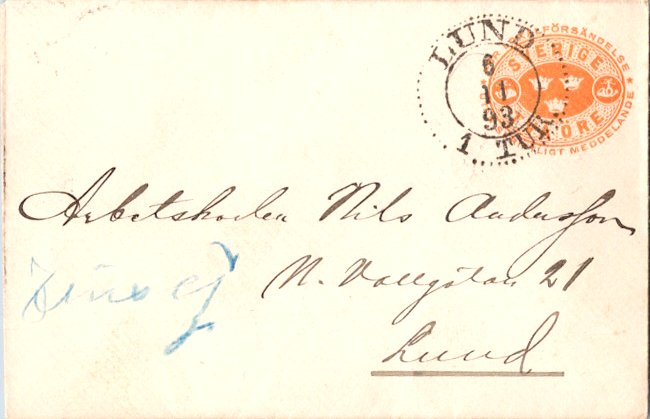 LUND
6
11
93
1. TUR
FÖRSÄNDELSE
SVERIGE
ÖRE
LIGT MEDDELANDE
Arbetskarlen Nils Andersson
N. Vallgatan 21
Finns ej
Lund